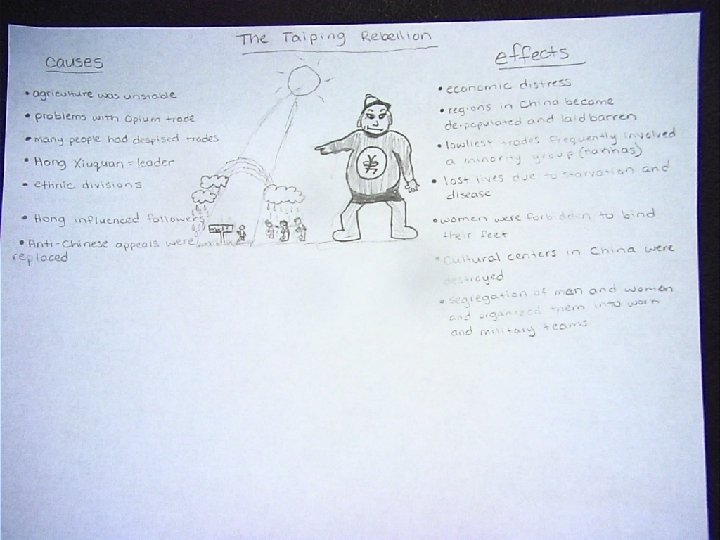 The Taiping Rebellion
causes
• agriculture was unstable
• problems with Opium trade
• many people had despised trades
• Hong Xiuquan = leader
• ethnic divisions
• Hong influenced followers
• Anti-Chinese appeals were
replaced
effects
• economic distress
• regions in China become
depopulated and laid barren
• lowliest trades frequently involved
a minority group (Hannas)
• lost lives due to starvation and
disease
• women were forbidden to bind
their feet
• Cultural centers in China were
destroyed
• segregation of men and women
and organized them into work
and military teams